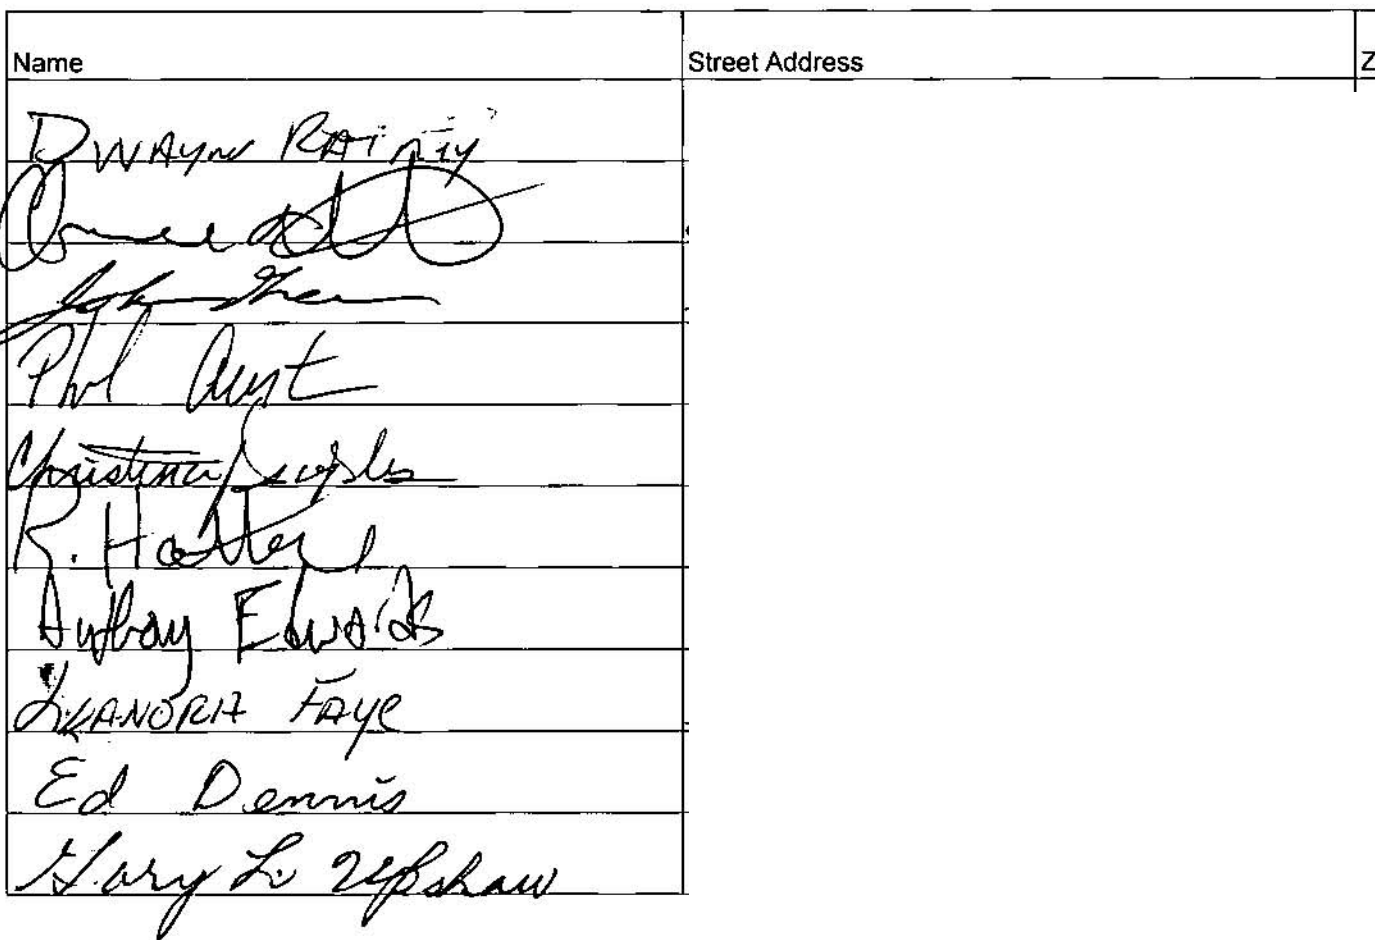 Name Street Address Z
Dwayne Rainey
John
Phil Aust
Christina Peoples
R. Hatter
Anthony Edwards
Leanora Faye
Ed Dennis
Gary L. Upshaw